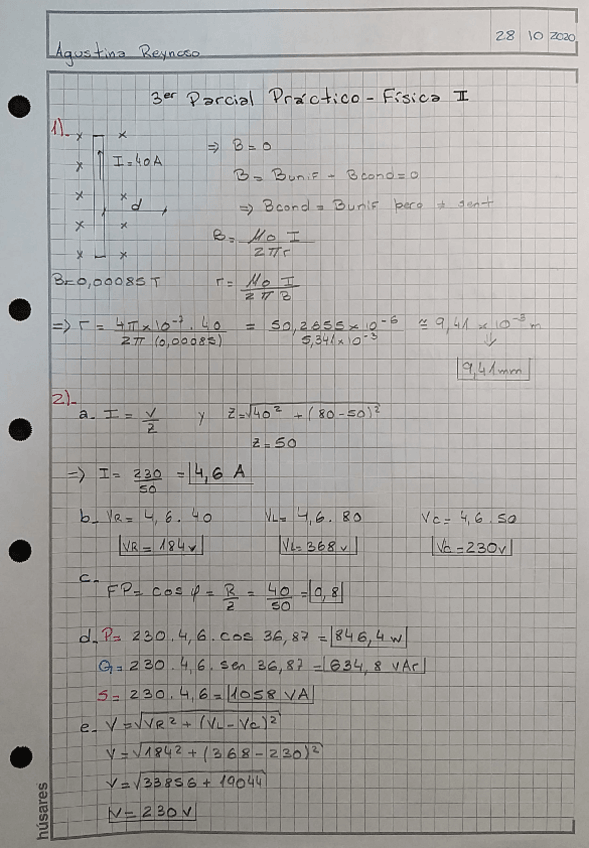 28 10 2020
Agustina Reynoso
3er Parcial Práctico - Física I
1)_
x x
x I = 40A
x x
d
x x
x x
⇒ B = 0
B = Bunif - Bcond = 0
⇒ Bcond = Bunif pero ≠ sent
B = μo I / 2πr
B=0,00085T r = μo I / 2πB
⇒ r = 4π x 10⁻⁷ . 40 / 2π (0,00085) = 50,2655 x 10⁻⁶ / 5,341 x 10⁻³ ≅ 9,41 x 10⁻³ m
↓
9,41mm
2)_
a. I = V/Z y Z = √40² + (80-50)²
Z = 50
⇒ I = 230/50 = 4,6 A
b_ VR = 4,6 . 40 VL = 4,6 . 80 Vc = 4,6 . 50
VR = 184v VL = 368v Vc = 230v
c_
FP = cos φ = R/Z = 40/50 = 0,8
d_ P = 230 . 4,6 . cos 36,87 = 846,4 w
Q = 230 . 4,6 . sen 36,87 = 634,8 VAr
S = 230 . 4,6 = 1058 VA
e_ V = √VR² + (VL - Vc)²
V = √184² + (368 - 230)²
V = √33856 + 19044
V = 230 V
húsares